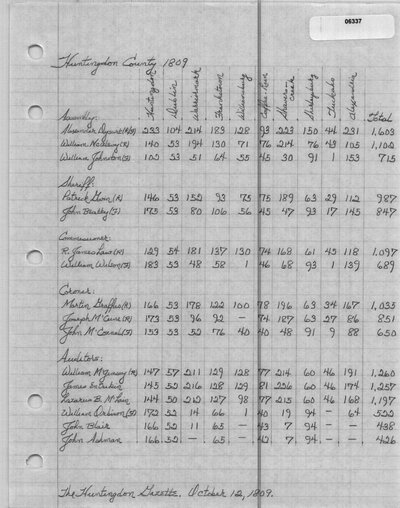 06337
Huntingdon County 1809
Huntingdon Dublin Warriormark Frankstown Williamsburg Coffee-Run Shavers-Creek Shirleysburg Tuckaho Alexandria
Assembly: Total
Alexander Dysart (R/F) 233 104 214 189 128 93 223 150 44 231 1,603
William (R) 140 53 194 130 71 76 214 76 43 105 1,102
William Johnston (F) 102 53 51 64 55 45 30 91 1 153 715
Sheriff:
Patrick Gwin (R) 146 53 152 93 75 75 189 63 29 112 987
John Beatty (F) 173 53 80 106 56 45 47 93 17 145 847
Commissioner:
R. James Law (R) 129 54 181 137 130 74 168 61 45 118 1,097
William Wilson (F) 183 53 48 58 1 46 68 93 1 139 689
Coroner:
Martin Graffus (R) 166 53 178 122 100 78 196 63 34 167 1,033
Joseph McCune (R) 173 53 96 92 - 74 187 63 27 86 851
John McConnel (F) 153 53 52 76 40 40 48 91 9 88 650
Auditors:
William McGinley (R) 147 57 211 129 128 77 214 60 46 191 1,260
James 145 52 216 128 129 81 226 60 46 174 1,257
Lazarus B. McLain 144 50 212 127 98 77 215 60 46 168 1,197
William Orbison (F) 172 52 14 66 1 40 19 94 - 64 522
John Blair 166 52 11 65 - 43 7 94 - - 438
John Ashman 166 52 - 65 - 42 7 94 - - 426
The Huntingdon Gazette, October 12, 1809.